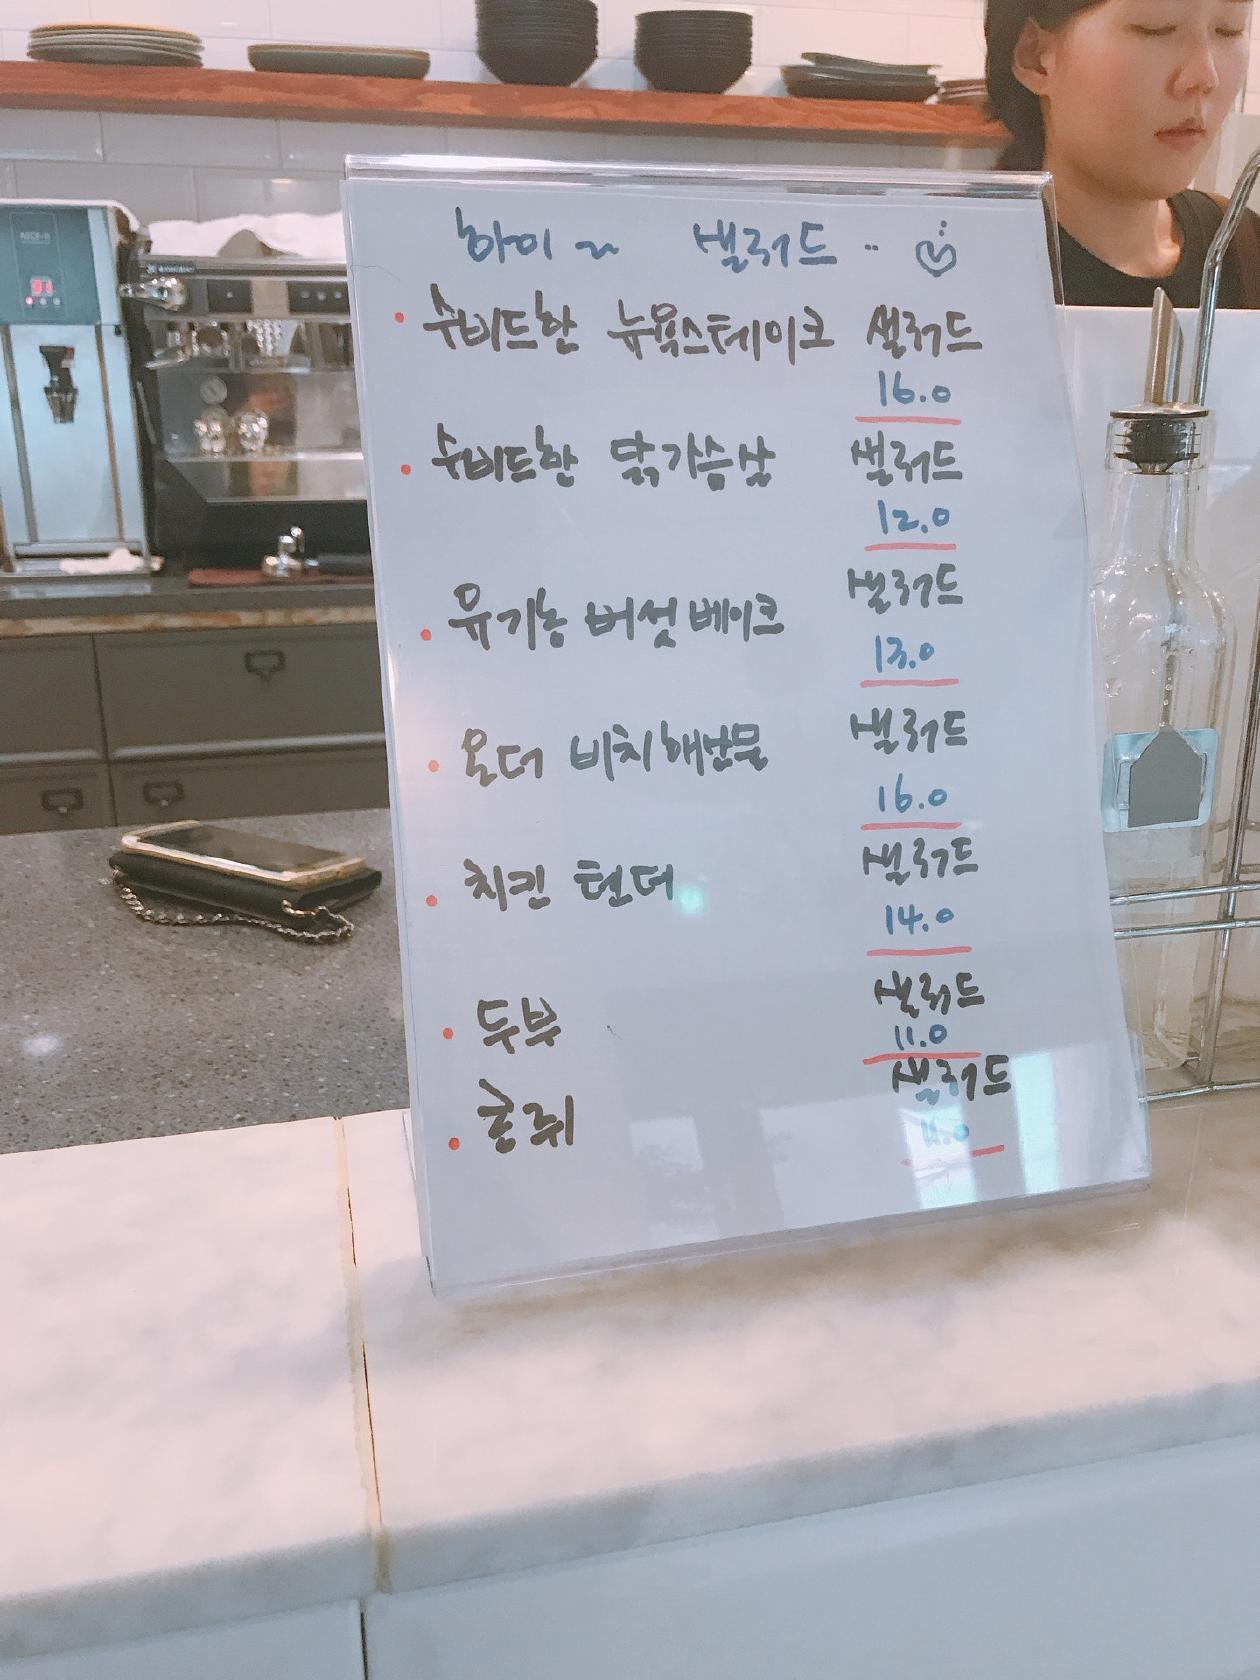 하이~ 샐러드..
수비드한 뉴욕스테이크 샐러드
16.0
수비드한 닭가슴살 샐러드
12.0
유기농 버섯베이크 샐러드
13.0
오더 비치해산물 샐러드
16.0
치킨 텐더 샐러드
14.0
두부 샐러드
11.0
샐러드
91